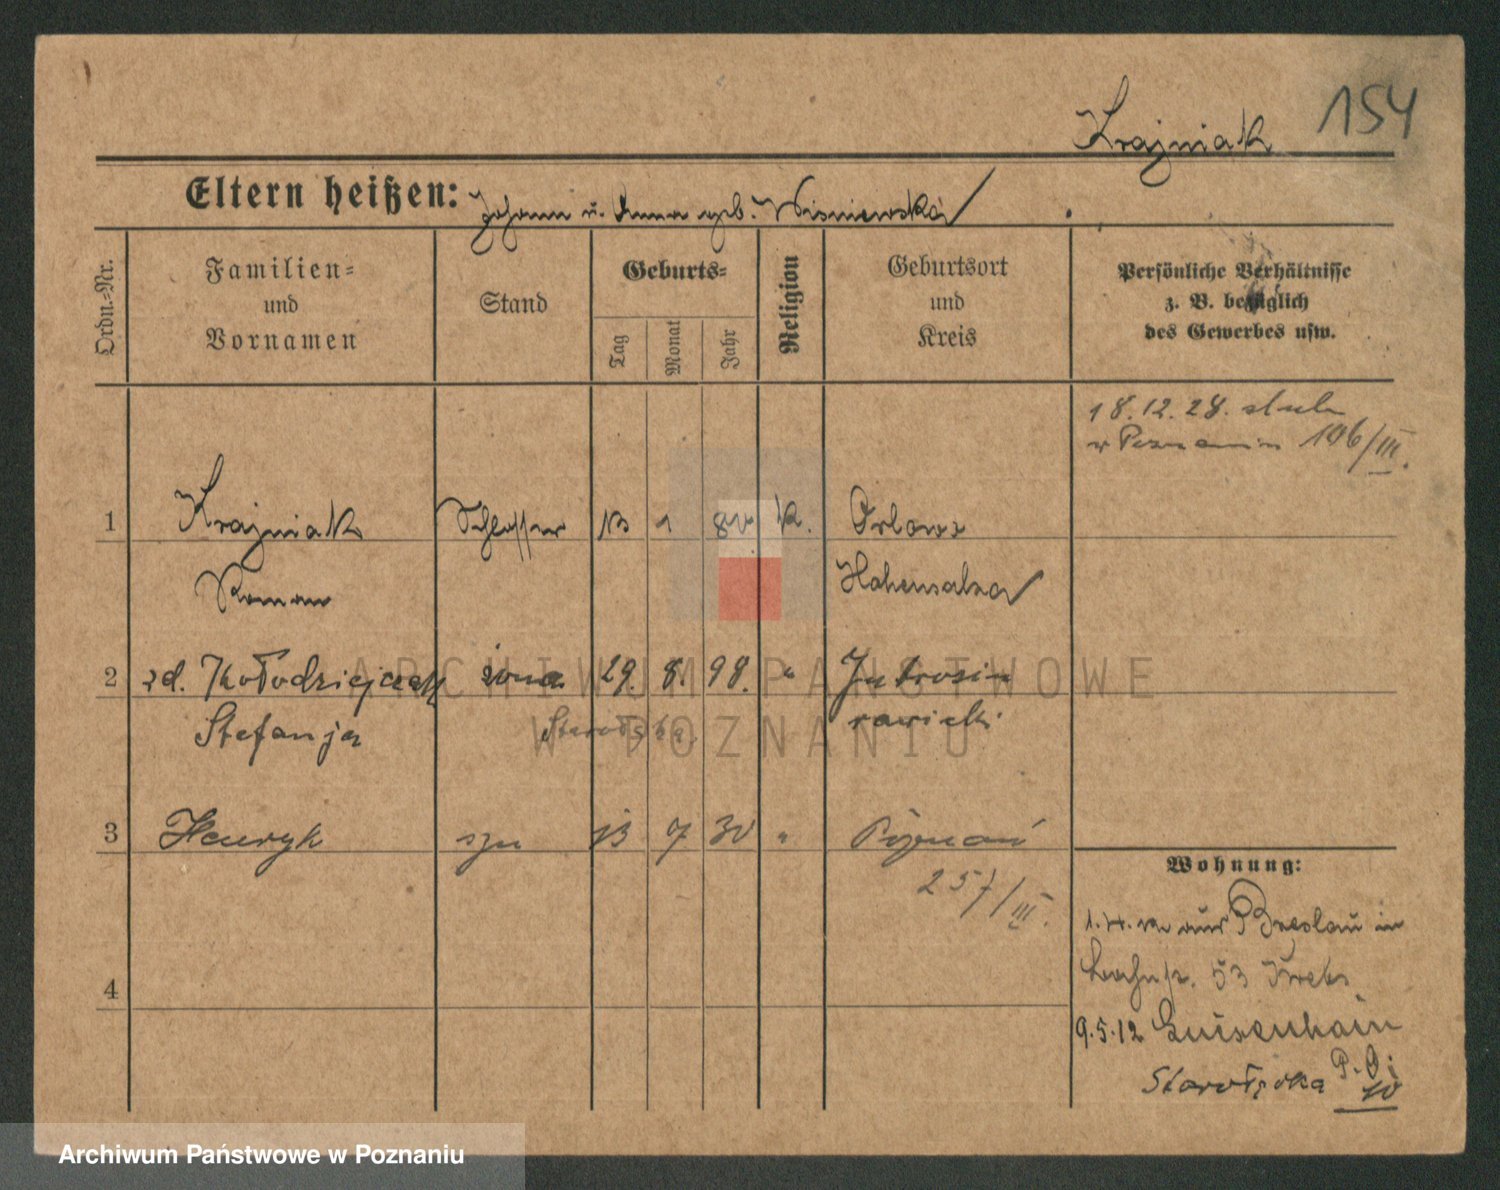 154
Krajniak
Eltern heißen: Johann u. Anna geb. Wisniewska
Ordn.=Nr.
Familien=
und
Vornamen
Stand
Geburts=
Tag
Monat
Jahr
Religion
Geburtsort
und
Kreis
Persönliche Verhältnisse
z. B. bezüglich
des Gewerbes usw.
18.12.28. ślub
w Poznaniu 106/III.
1 Krajniak Schlosser 13 1 K. Orlowo
Roman Hohensalza
2 zd. Kołodziejczak żona 29. 8. 98. " Jutrosin
Stefanja Starołęka rawicki
3 Henryk syn 13 7 30 " Poznań
257/III.
4
Wohnung:
aus Breslau in
53 Krebs
9.5.12 Luisenhain
Starołęka
ARCHIWUM PAŃSTWOWE
W POZNANIU
Archiwum Państwowe w Poznaniu